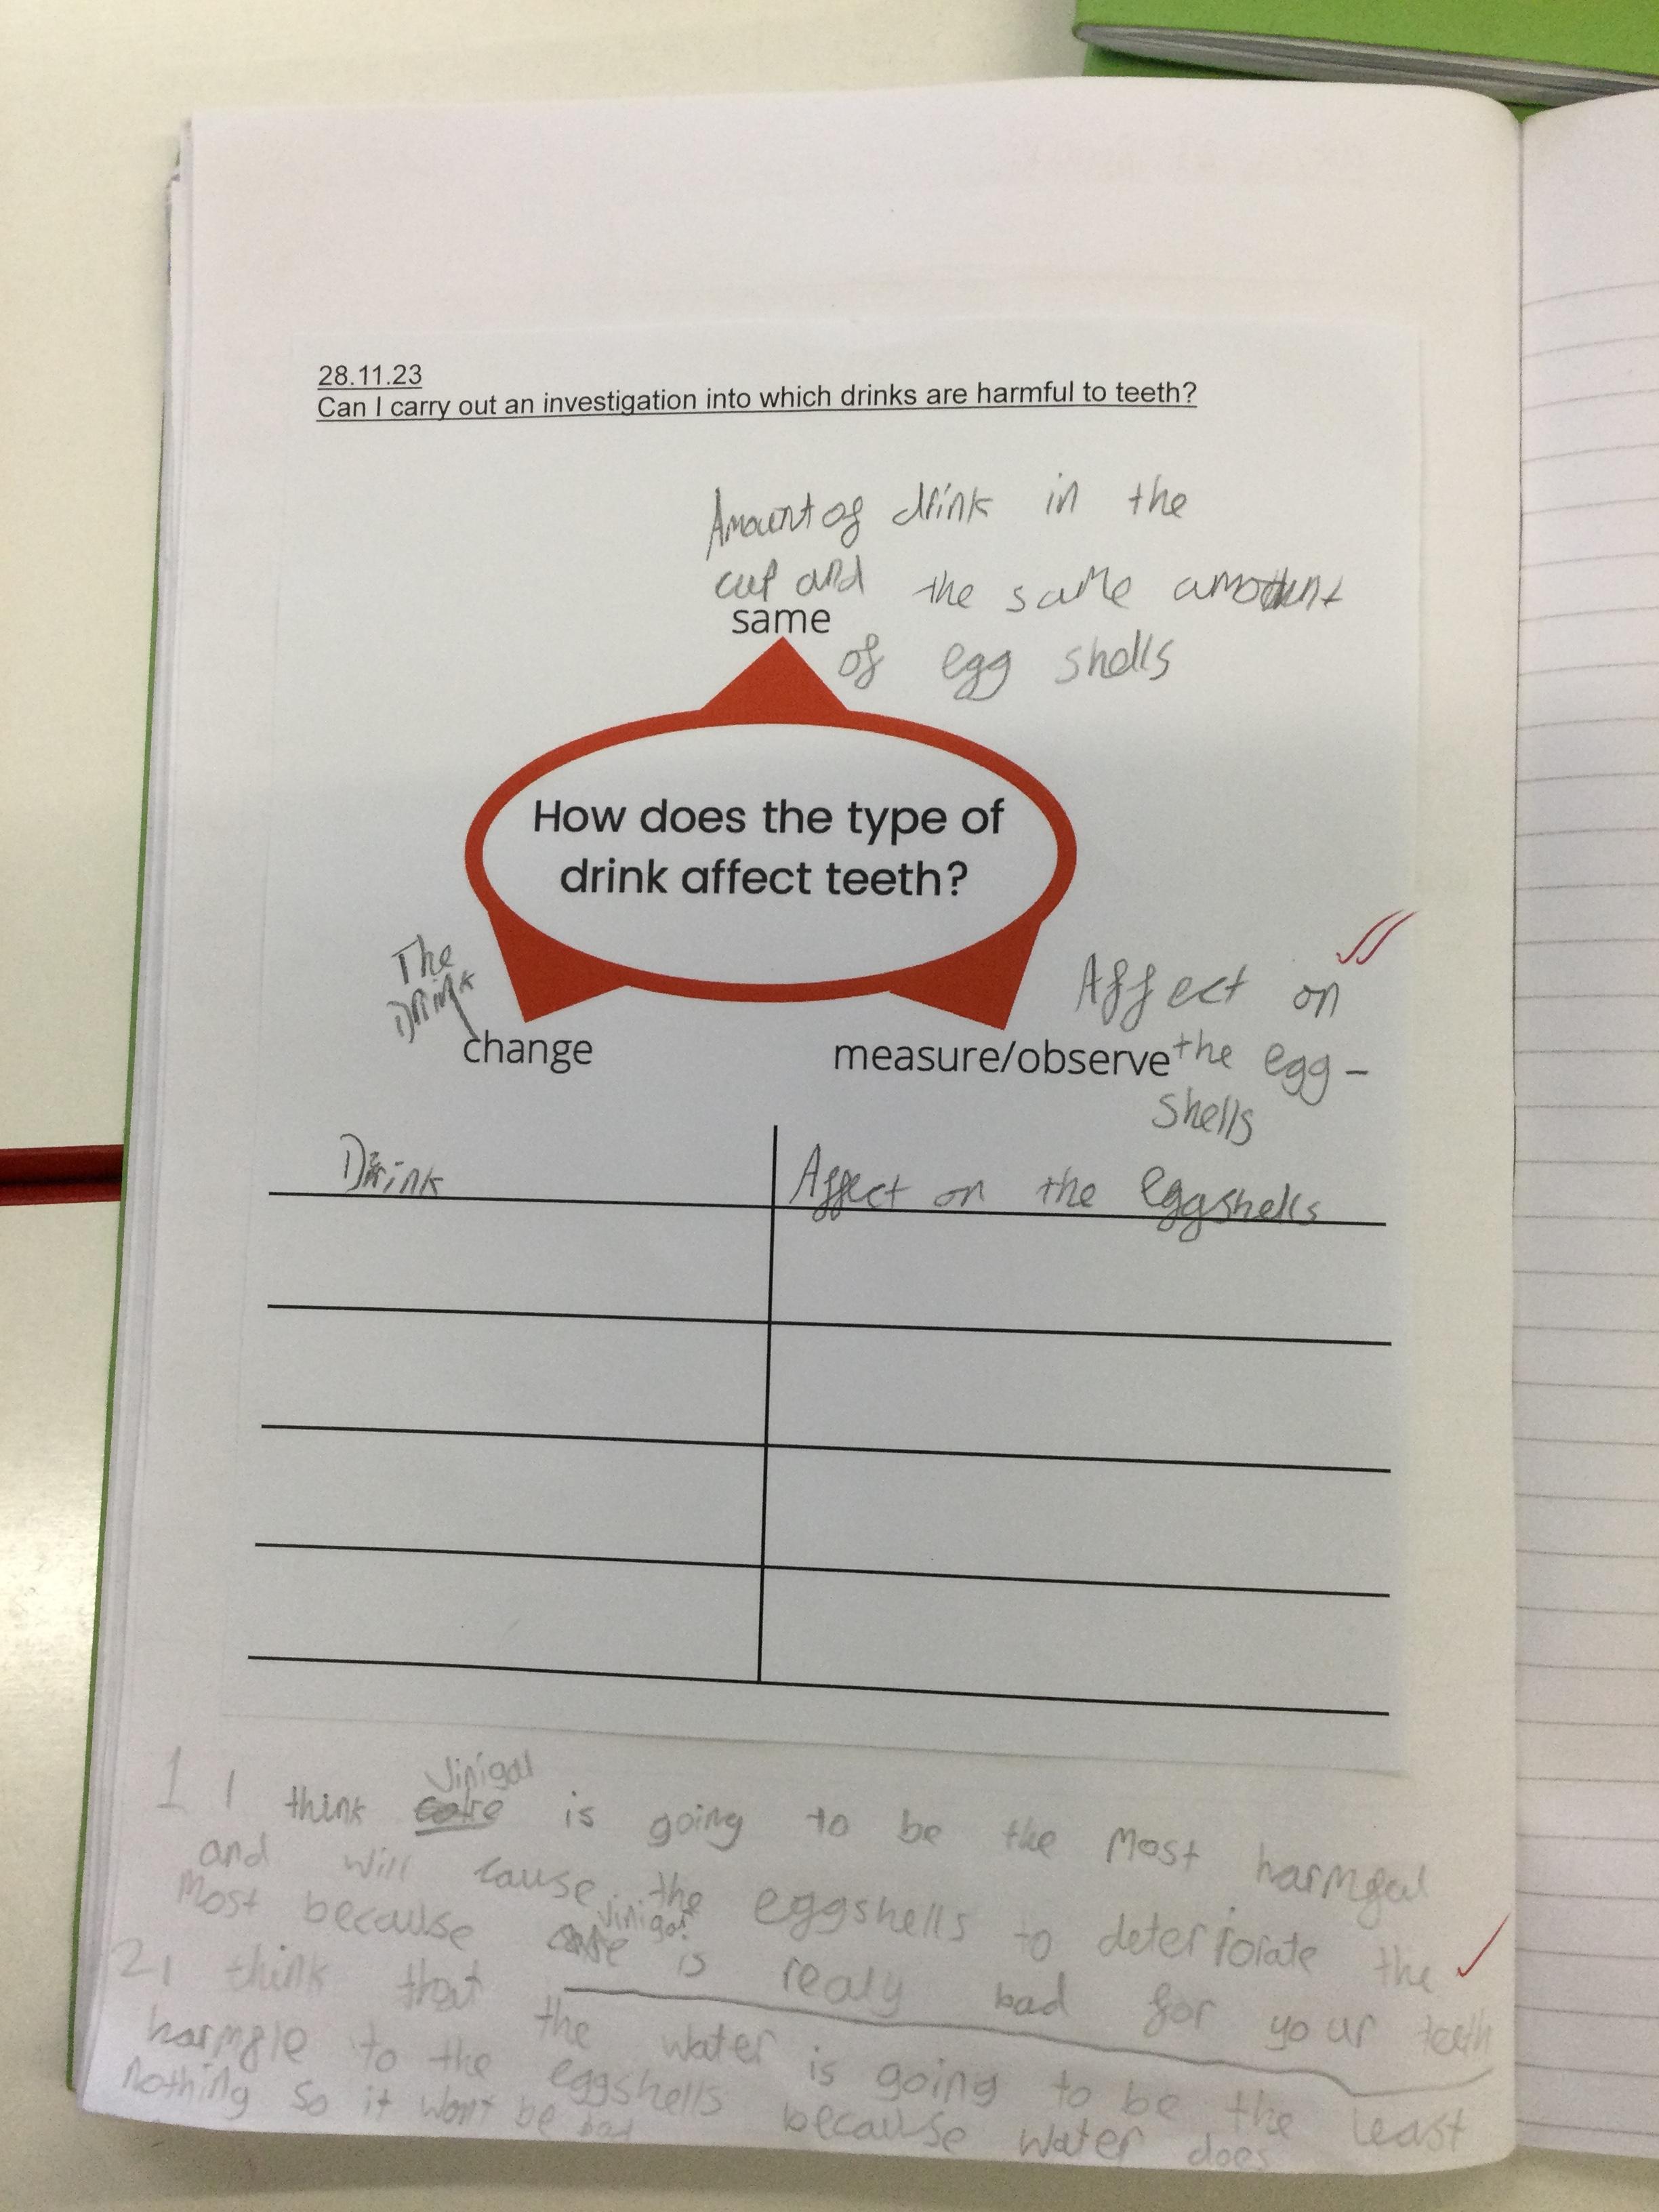 28.11.23
Can I carry out an investigation into which drinks are harmful to teeth?
Amount of drink in the
cup and the same amount
same
of egg shells
How does the type of
drink affect teeth?
The
Drink
change
measure/observe
Affect on
the egg-
shells
Drink
Affect on the eggshells
Vinigal
1 I think is going to be the most harmful
and will cause the eggshells to deteriorate the
vinigar
most because is realy bad for your teeth
2 I think that the water is going to be the least
harmgle to the eggshells because water does
nothing so it won't be bad